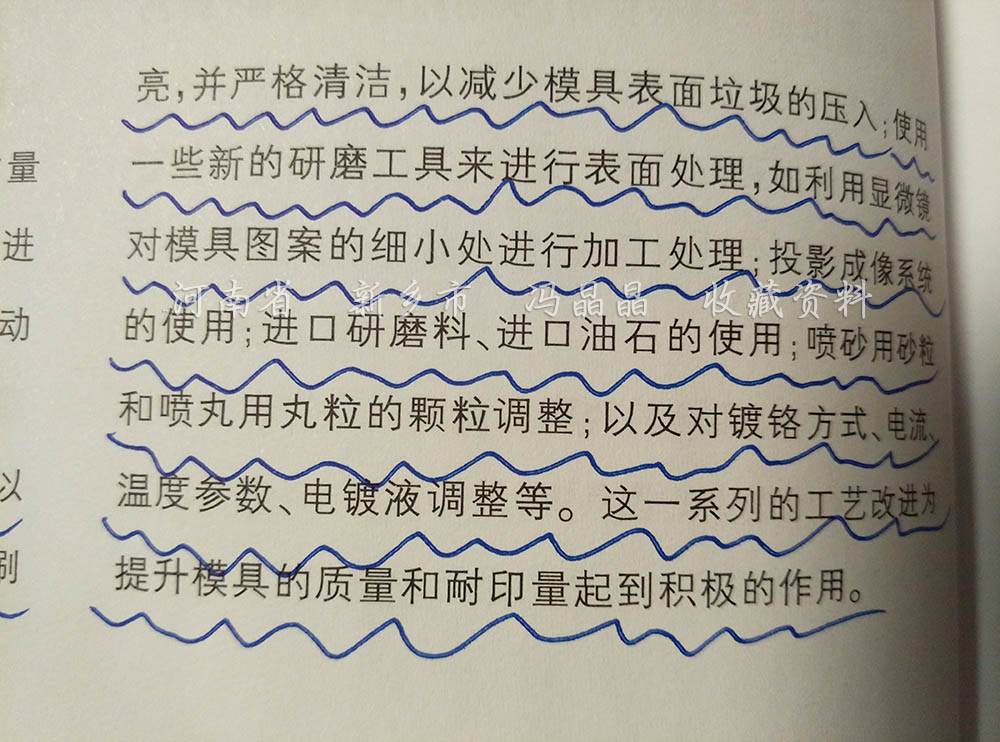 亮，并严格清洁，以减少模具表面垃圾的压入；使用
量
一些新的研磨工具来进行表面处理，如利用显微镜
进
对模具图案的细小处进行加工处理；投影成像系统
河南省 新乡市 冯晶晶 收藏资料
动
的使用；进口研磨料、进口油石的使用；喷砂用砂粒
和喷丸用丸粒的颗粒调整；以及对镀铬方式、电流、
以
温度参数、电镀液调整等。这一系列的工艺改进为
刷
提升模具的质量和耐印量起到积极的作用。